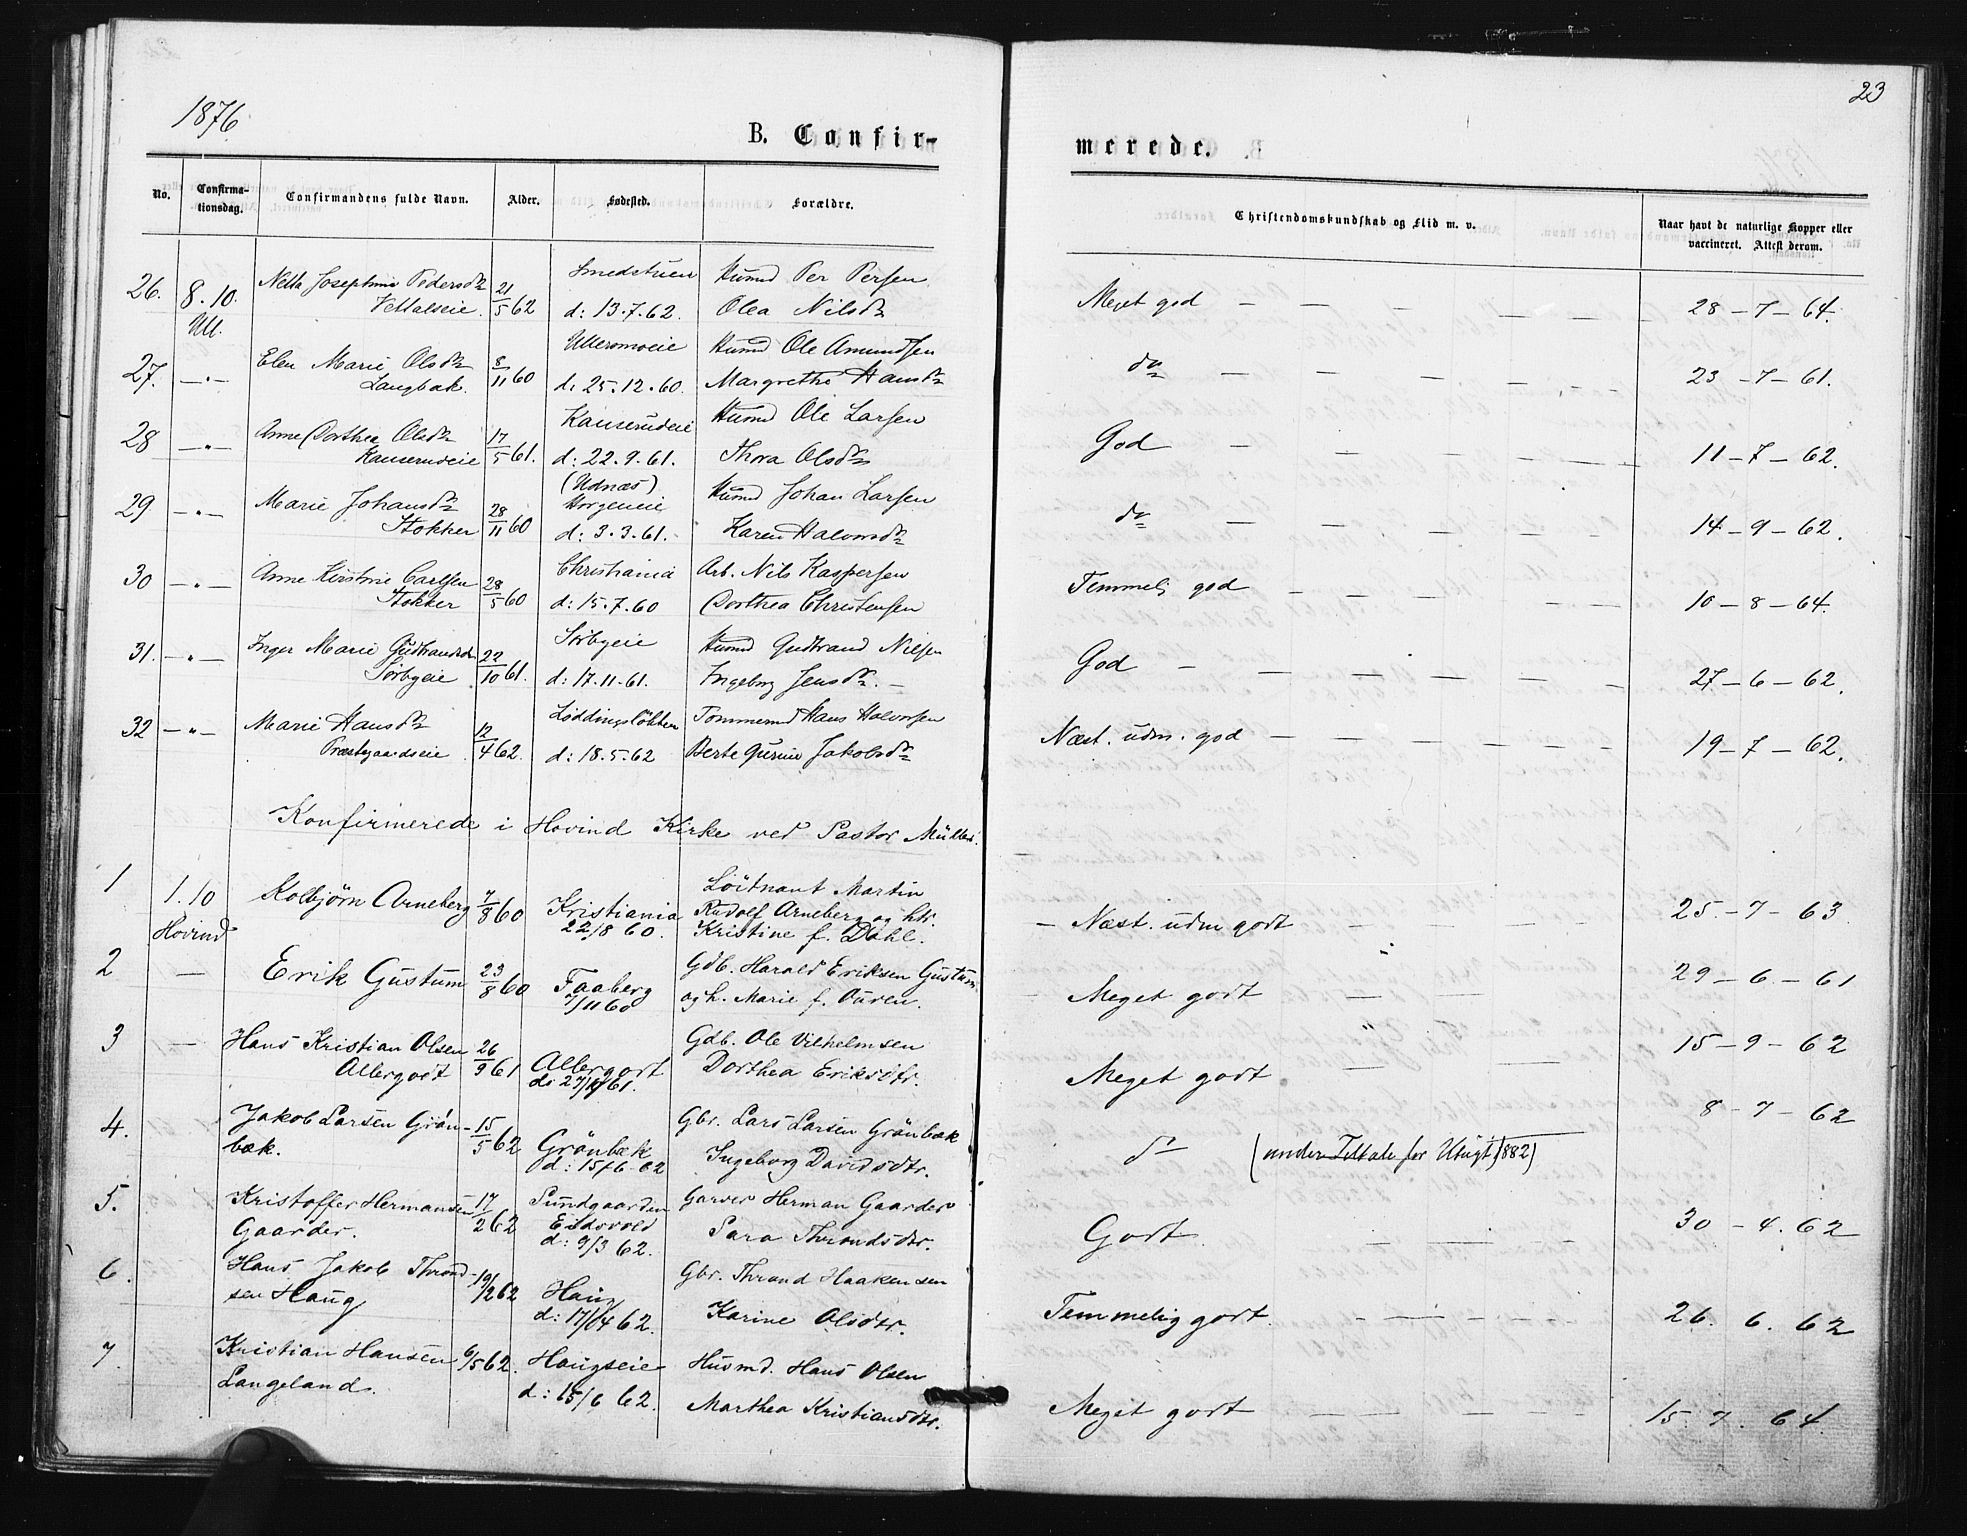 1876
23
B. Confir-
merede.
No.
Confirma-
tionsdag.
Confirmandens fulde Navn.
Alder.
Fødested.
Forældre.
Christendomskundskab og Flid m. v.
Naar havt de naturlige Kopper eller
vaccineret. Attest derom.
26. 8.10. Netta Josephine Pedersdtr 21/5 62 Smedstuen Husmd Per Persen Meget god — 28-7-64.
Ull. Vettalseie. d: 13.7.62. Olea Nilsdtr
27. —"— Elen Marie Olsdtr 8/11 60 Ulleromoeie Husmd Ole Amundsen do 23-7-61.
Langbak. d: 25.12.60. Margrethe Hansdtr
28 —"— Anne Dorthea Olsdtr 17/5 61. Kauserudeie Husmd Ole Larsen God — 11-7-62.
Kauserudeie d: 22.9.61. Thora Olsdtr
29 —"— Marie Johansdtr 28/11 60 (Udnæs) Horgeneie Husmd Johan Larsen do 14-9-62.
Stokker d: 3.3.61. Karen Halvorsdtr
30 —"— Anne Kirstine Carlsen 28/5 60 Christiania Arb. Nils Kaspersen Temmelig god 10-8-64.
Stokker d: 15.7.60 Dorthea Christensen
31. —"— Inger Marie Gudbrandsdtr 22/10 61. Sörbyeie Husmd Gudbrand Nilsen God — 27-6-62.
Sörbyeie d: 17.11.61. Ingeborg Jensdtr. —
32 —"— Marie Hansdtr 12/4 62. Løddingslökken Tømmermd Hans Halvorsen Næst. udm. god 19-7-62.
Præstgaardseie d: 18.5.62 Berte Gurine Jakobsdtr
Konfirmerede i Hovind Kirke ved Pastor Müller.
1 1.10 Kolbjørn Arneberg 7/8 60 Kristiania Löitnant Martin — Næst. udm godt 25.-7-63
Hovind 22/8 60. Rudolf Arneberg og htr.
Kristine f. Dahl.
2 — Erik Gustum 23/8 60 Faaberg Gdb. Harald Eriksen Gustum Meget godt 29-6-61
/11 60 og h. Marie f. Ouren.
3 Hans Kristian Olsen 26/9 61 Allergodt Gdb. Ole Vilhelmsen Meget godt 15-9-62
Allergodt d: 61. Dorthea Eriksdtr.
4. Jakob Larsen Grön- 15/5 62 Grönbæk Gbr. Lars Larsen Grönbæk do (under Tiltale for Utugt 1882) 8-7-62
bæk. d: 15/6.62 Ingeborg Davidsdtr.
5. Kristoffer Hermansen 17/2 62 Sundgaarden Garver Herman Gaarder Godt 30-4.62
Gaarder. Eidsvold Sara Throndsdtr.
d: 9/3 62.
6. Hans Jakob Thrond- 19/2 62 Haug Gbr. Thrond Haakensen Temmelig godt. 26. 6. 62
sen Haug d: 17/04 62. Karine Olsdtr.
7. Kristian Hansen 6/5 62. Haugseie Husmd. Hans Olsen Meget godt 15. 7. 64.
Langeland. d: 15/6 62. Marthea Kristiansdtr.